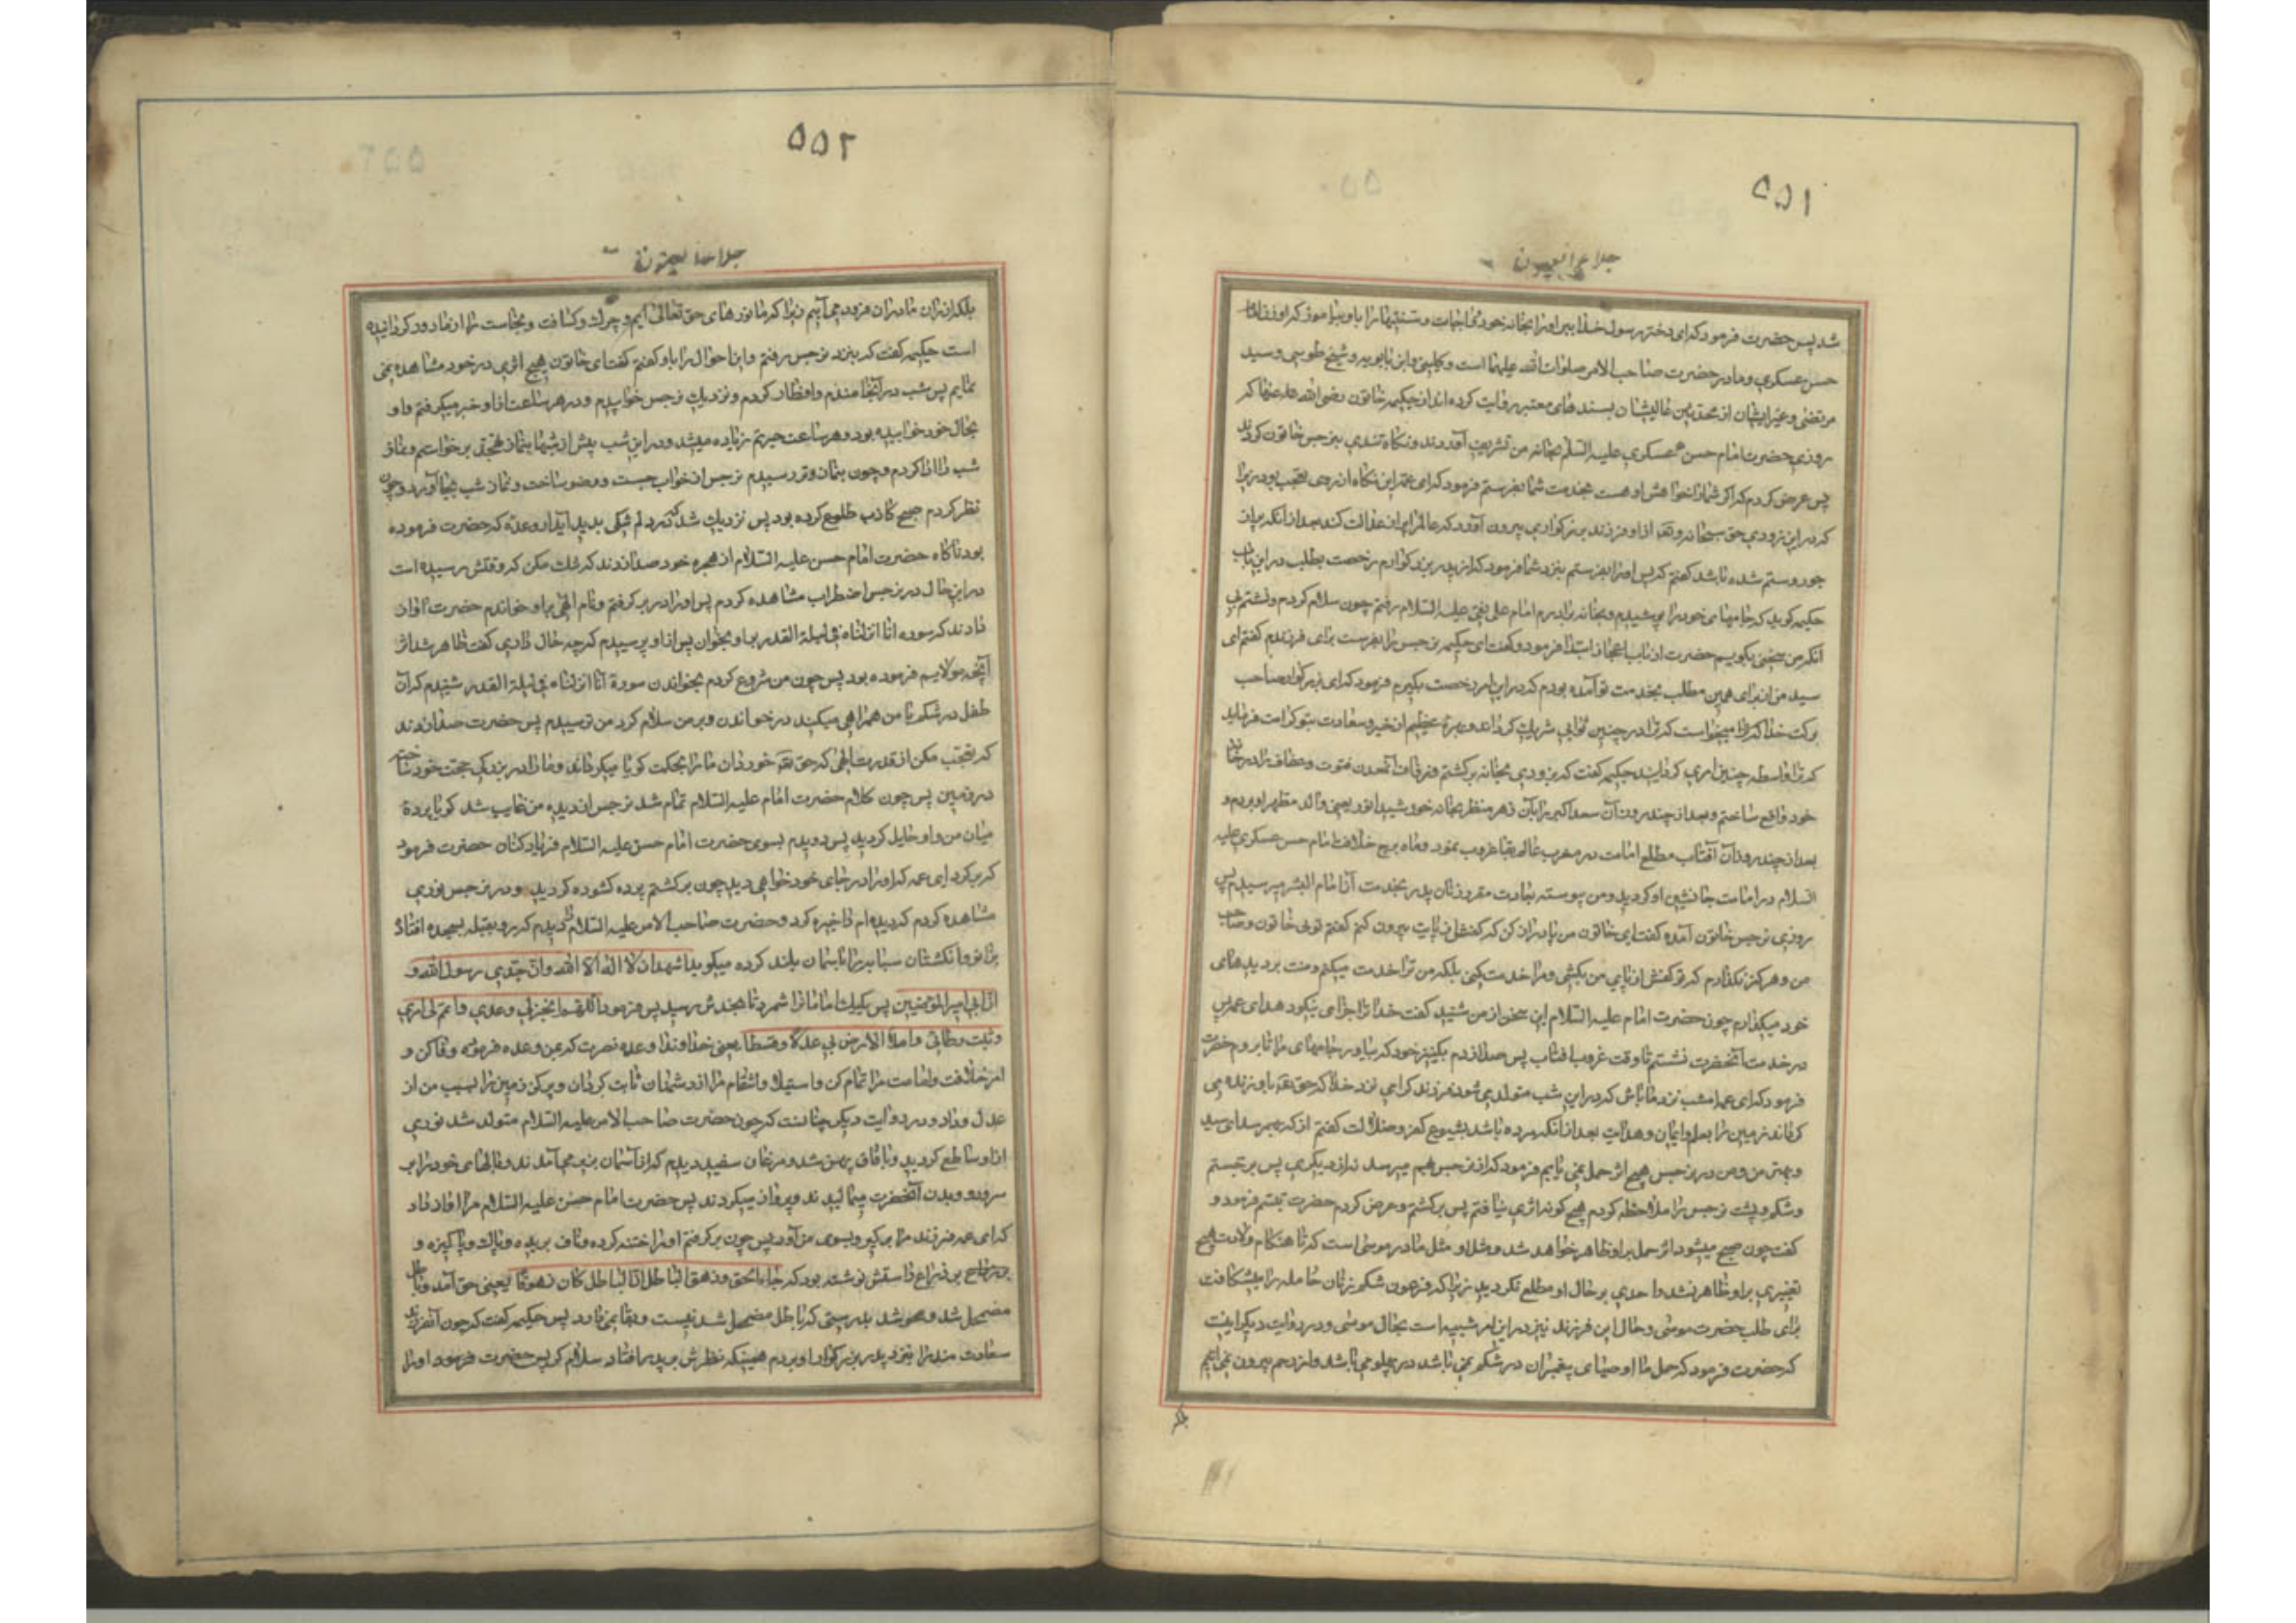 ۵۵۱
جلاء العیون
شد پس حضرت فرمود که ای دختر رسول خدا ببر او را بخانه خود و واجبات و سنتها را باو بیاموز که او زن
حسن عسکری و مادر حضرت صاحب الامر صلوات الله علیهما است و کلینی و ابن بابویه و شیخ طوسی و سید
مرتضی و غیر ایشان از محدثین عالیشان بسندهای معتبر روایت کرده اند از حکیمه خاتون رضی الله عنها که
روزی حضرت امام حسن عسکری علیه السلم بخانه من تشریف آوردند و نگاه تندی بنرجس خاتون کردند
پس عرض کردم که اگر شما را خواهش او هست بخدمت شما بفرستم فرمود که ای عمه این نگاه از روی تعجب بود زیرا
که در این زودی حق سبحانه و تعه از او فرزند بزرگواری بیرون آورد که عالم را پر از عدالت کند بعد از آنکه پر از
جور و ستم شده باشد گفتم که پس او را بفرستم بنزد شما فرمود که از پدر بزرگوارم رخصت بطلب در این باب
حکیمه گوید که جامهای خود را پوشیدم و بخانه برادرم امام علی نقی علیه السلام رفتم چون سلام کردم و نشستم بی
آنکه من سخنی بگویم حضرت از باب اعجاز ابتدا فرمود و گفت ای حکیمه نرجس را بفرست برای فرزندم گفتم ای
سید من از برای همین مطلب بخدمت تو آمده بودم که در این امر رخصت بگیرم فرمود که ای بزرگوار صاحب
برکت خدا که ترا میخواست که ترا در چنین ثوابی شریک گرداند و بهرهٔ عظیم از خیر و سعادت بتو کرامت فرماید
که ترا واسطه چنین امری گردانید حکیمه گفت که بزودی بخانه برگشتم و زفاف آن معدن فتوت و عفاف را در خانه
خود واقع ساختم و بعد از چند روز آن سعد اکبر را با آن زهره منظر بخانه خورشید انور یعنی والد مطهر او بردم و
بعد از چند روز آن آفتاب مطلع امامت در مغرب عالم بقا غروب نمود و ماه برج خلافت امام حسن عسکری علیه
السلام در امامت جانشین او گردید و من پیوسته بعادت مقرر زمان پدر بخدمت آن امام البشر میرسیدم پس
روزی نرجس خاتون آمده گفت ای خاتون من پا دراز کن که کفش از پایت بیرون کنم گفتم توئی خاتون و صاحب
من و هرگز نگذارم که تو کفش از پای من بکشی و مرا خدمت کنی بلکه من ترا خدمت میکنم و منت بر دیدهای
خود میگذارم چون حضرت امام علیه السلام این سخن از من شنید گفت خدا ترا جزای نیکو دهد ای عمه پس
در خدمت آنحضرت نشستم تا وقت غروب افتاب پس صدا زدم بکنیز خود که بیاور جامهای مرا تا بروم حضرت
فرمود که ای عمه امشب نزد ما باش که در این شب متولد می شود فرزند گرامی نزد خدا که حق تعه باو زنده می
گرداند زمین را بعلم و ایمان و هدایت بعد از آنکه مرده باشد بشیوع کفر و ضلالت گفتم از که بهم رسد ای سید
و بهتر من و من در نرجس هیچ اثر حمل نمی یابم فرمود که از نرجس بهم میرسد نه از دیگری پس برجستم
و شکم و پشت نرجس را ملاحظه کردم هیچ گونه اثری نیافتم پس برگشتم و عرض کردم حضرت تبسم فرمود و
گفت چون صبح میشود اثر حمل بر او ظاهر خواهد شد و مثل او مثل مادر موسی است که تا هنگام ولادت هیچ
تغییری بر او ظاهر نشد و احدی بر حال او مطلع نگردید زیرا که فرعون شکم زنان حامله را میشکافت
برای طلب حضرت موسی و حال این فرزند نیز در این امر شبیه است بحال موسی و در روایت دیگر اینست
که حضرت فرمود که حمل ما اوصیای پیغمبران در شکم نمی باشد در پهلو می باشد و از رحم بیرون نمی آئیم
۵۵۲
جلاء العیون
بلکه از ران مادران فرود می آییم زیرا که ما نورهای حق تعالی ایم و چرک و کثافت و نجاست را از ما دور گردانیده
است حکیمه گفت که بنزد نرجس رفتم و این احوال را باو گفتم گفت ای خاتون هیچ اثری در خود مشاهده نمی
نمایم پس شب در آنجا ماندم و افطار کردم و نزدیک نرجس خوابیدم و در هر ساعت از او خبر میگرفتم و او
بحال خود خوابیده بود و هر ساعت حیرتم زیاده میشد و در این شب بیش از شبها بنماز تهجد برخواستم و نماز
شب ادا کردم و چون بنماز وتر رسیدم نرجس از خواب جست و وضو ساخت و نماز شب بجا آورد و چون
نظر کردم صبح کاذب طلوع کرده بود پس نزدیک شد که در دلم شکی پدید آید از وعدهٔ که حضرت فرموده
بود ناگاه حضرت امام حسن علیه السلام از حجره خود صدا زدند که شک مکن که وقتش رسیده است
در این حال در نرجس اضطراب مشاهده کردم پس او را در بر گرفتم و نام الهی بر او خواندم حضرت آواز
دادند که سوره انا انزلناه فی لیلة القدر بر او بخوان پس از او پرسیدم که چه حال داری گفت ظاهر شد اثر
آنچه مولایم فرموده بود پس چون من شروع کردم بخواندن سورة انا انزلناه فی لیلة القدر شنیدم که آن
طفل در شکم با من همراهی میکند در خواندن و بر من سلام کرد من ترسیدم پس حضرت صدا زدند
که تعجب مکن از قدرت الهی که حق تعه خوردان ما را بحکمت گویا میگرداند و ما را در بزرگی حجت خود ساخته
در زمین پس چون کلام حضرت امام علیه السلام تمام شد نرجس از دیده من غایب شد گویا پردهٔ
میان من و او حایل گردید پس دویدم بسوی حضرت امام حسن علیه السلام فریاد کنان حضرت فرمود
که برگرد ای عمه که او را در جای خود خواهی دید چون برگشتم پرده گشوده گردید و در نرجس نوری
مشاهده کردم که دیده ام را خیره کرد و حضرت صاحب الامر علیه السلام را دیدم که رو بقبله بسجده افتاده
بزانو و انگشتان سبابه را بآسمان بلند کرده میگوید اشهد ان لا اله الا الله و ان جدی رسول الله و
ان ابی امیر المؤمنین پس یکیک امامان را شمرد تا بخودش رسید پس فرمود اللهم انجز لی وعدی و اتمم لی امری
و ثبت وطاتی و املاء الارض بی عدلا و قسطا یعنی خداوندا وعده نصرت که بمن وعده فرموده وفا کن و
امر خلافت و امامت مرا تمام کن و استیلا و انتقام مرا از دشمنان ثابت گردان و پر کن زمین را بسبب من از
عدل و داد و در روایت دیگر چنانست که چون حضرت صاحب الامر علیه السلام متولد شد نوری
از او ساطع گردید و بآفاق پهن شد و مرغان سفید دیدم که از آسمان بزیر می آمدند و بالهای خود را بر
سر و رو و بدن آنحضرت میمالیدند و پرواز میکردند پس حضرت امام حسن علیه السلام مرا آواز داد
که ای عمه فرزند مرا برگیر و بسوی من آور پس چون برگرفتم او را ختنه کرده و ناف بریده و پاک و پاکیزه و
بر ذراع راستش نوشته بود که جاء الحق و زهق الباطل ان الباطل کان زهوقا یعنی حق آمد و باطل
مضمحل شد و محو شد بدرستی که باطل مضمحل شدنیست و بقا نمی دارد پس حکیمه گفت که چون آن فرزند
سعادت مند را بنزد پدر بزرگوار او بردم همینکه نظرش بر پدر افتاد سلام کرد پس حضرت فرمود او را